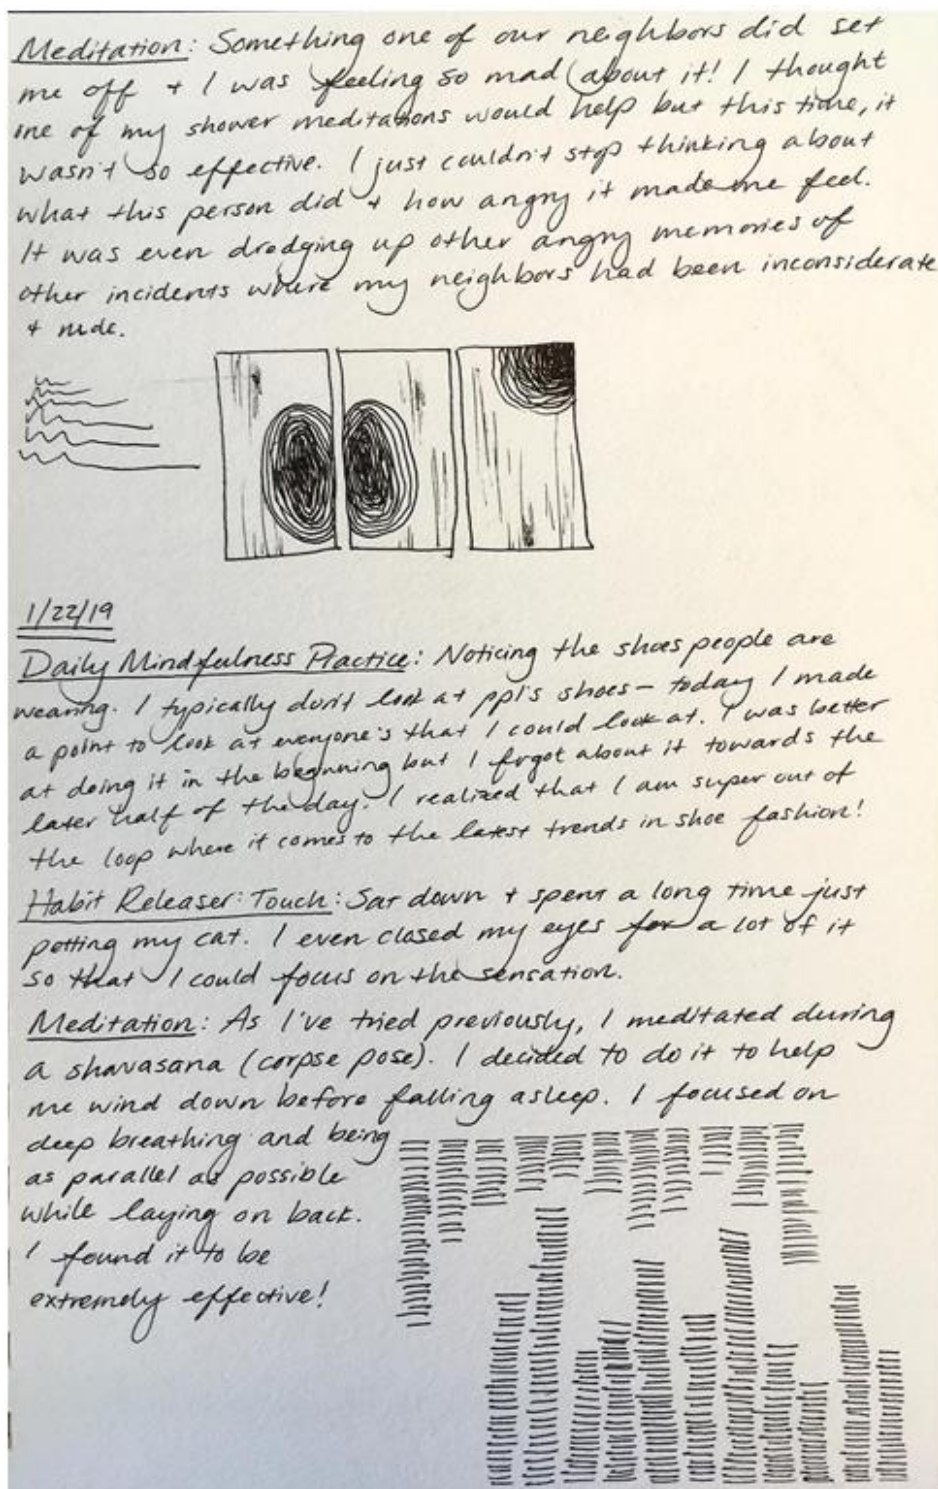 Meditation: Something one of our neighbors did set
me off + I was feeling so mad about it! I thought
one of my shower meditations would help but this time, it
wasn't so effective. I just couldn't stop thinking about
what this person did + how angry it made me feel.
It was even dredging up other angry memories of
other incidents where my neighbors had been inconsiderate
+ rude.
1/22/19
Daily Mindfulness Practice: Noticing the shoes people are
wearing. I typically don't look at ppl's shoes - today I made
a point to look at everyone's that I could look at. I was better
at doing it in the beginning but I forgot about it towards the
later half of the day. I realized that I am super out of
the loop where it comes to the latest trends in shoe fashion!
Habit Releaser: Touch: Sat down + spent a long time just
petting my cat. I even closed my eyes for a lot of it
so that I could focus on the sensation.
Meditation: As I've tried previously, I meditated during
a shavasana (corpse pose). I decided to do it to help
me wind down before falling asleep. I focused on
deep breathing and being
as parallel as possible
while laying on back.
I found it to be
extremely effective!